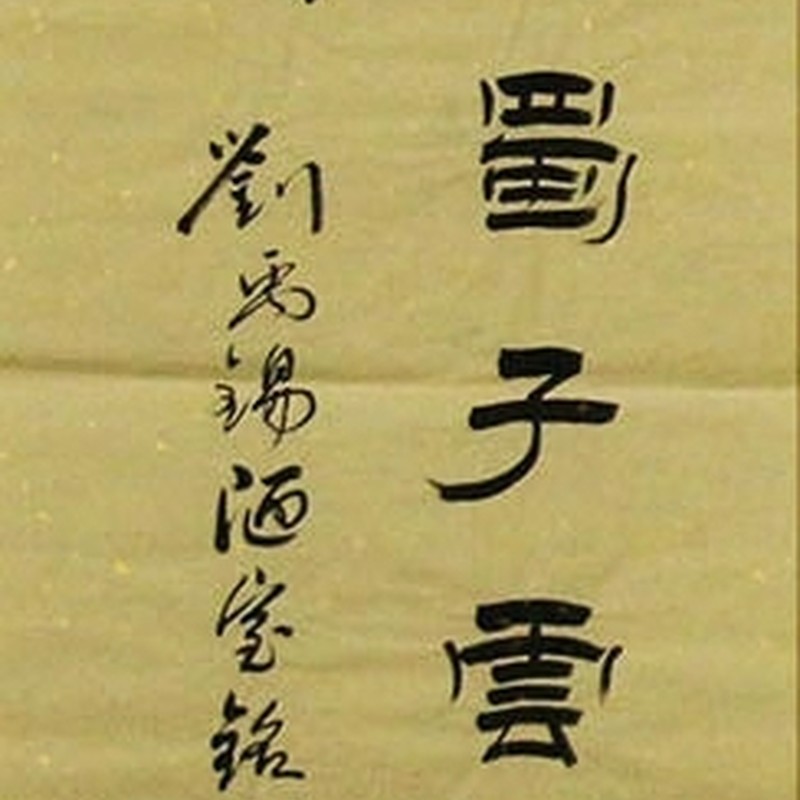 蜀子雲
劉禹錫陋室銘